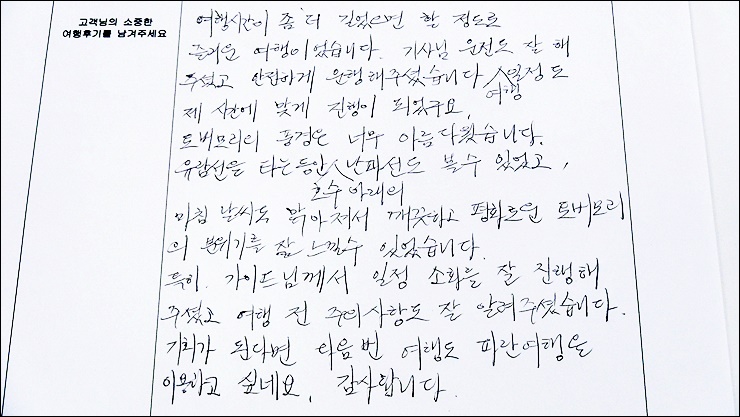 고객님의 소중한
여행후기를 남겨주세요
여행시간이 좀 더 길었으면 할 정도로
즐거운 여행이었습니다. 기사님 운전도 잘 해
주셨고 안전하게 운행해주셨습니다 일정도
여행
제 시간에 맞게 진행이 되었구요.
토버모리의 풍경은 너무 아름다웠습니다.
유람선을 타는동안 난파선도 볼수 있었고,
호수 아래의
마침 날씨도 맑아져서 깨끗하고 평화로운 토버모리
의 분위기를 잘 느낄수 있었습니다.
특히. 가이드님께서 일정 소화을 잘 진행해
주셨고 여행 전 주의사항도 잘 알려주셨습니다.
기회가 된다면 다음번 여행도 파란여행을
이용하고 싶네요. 감사합니다.